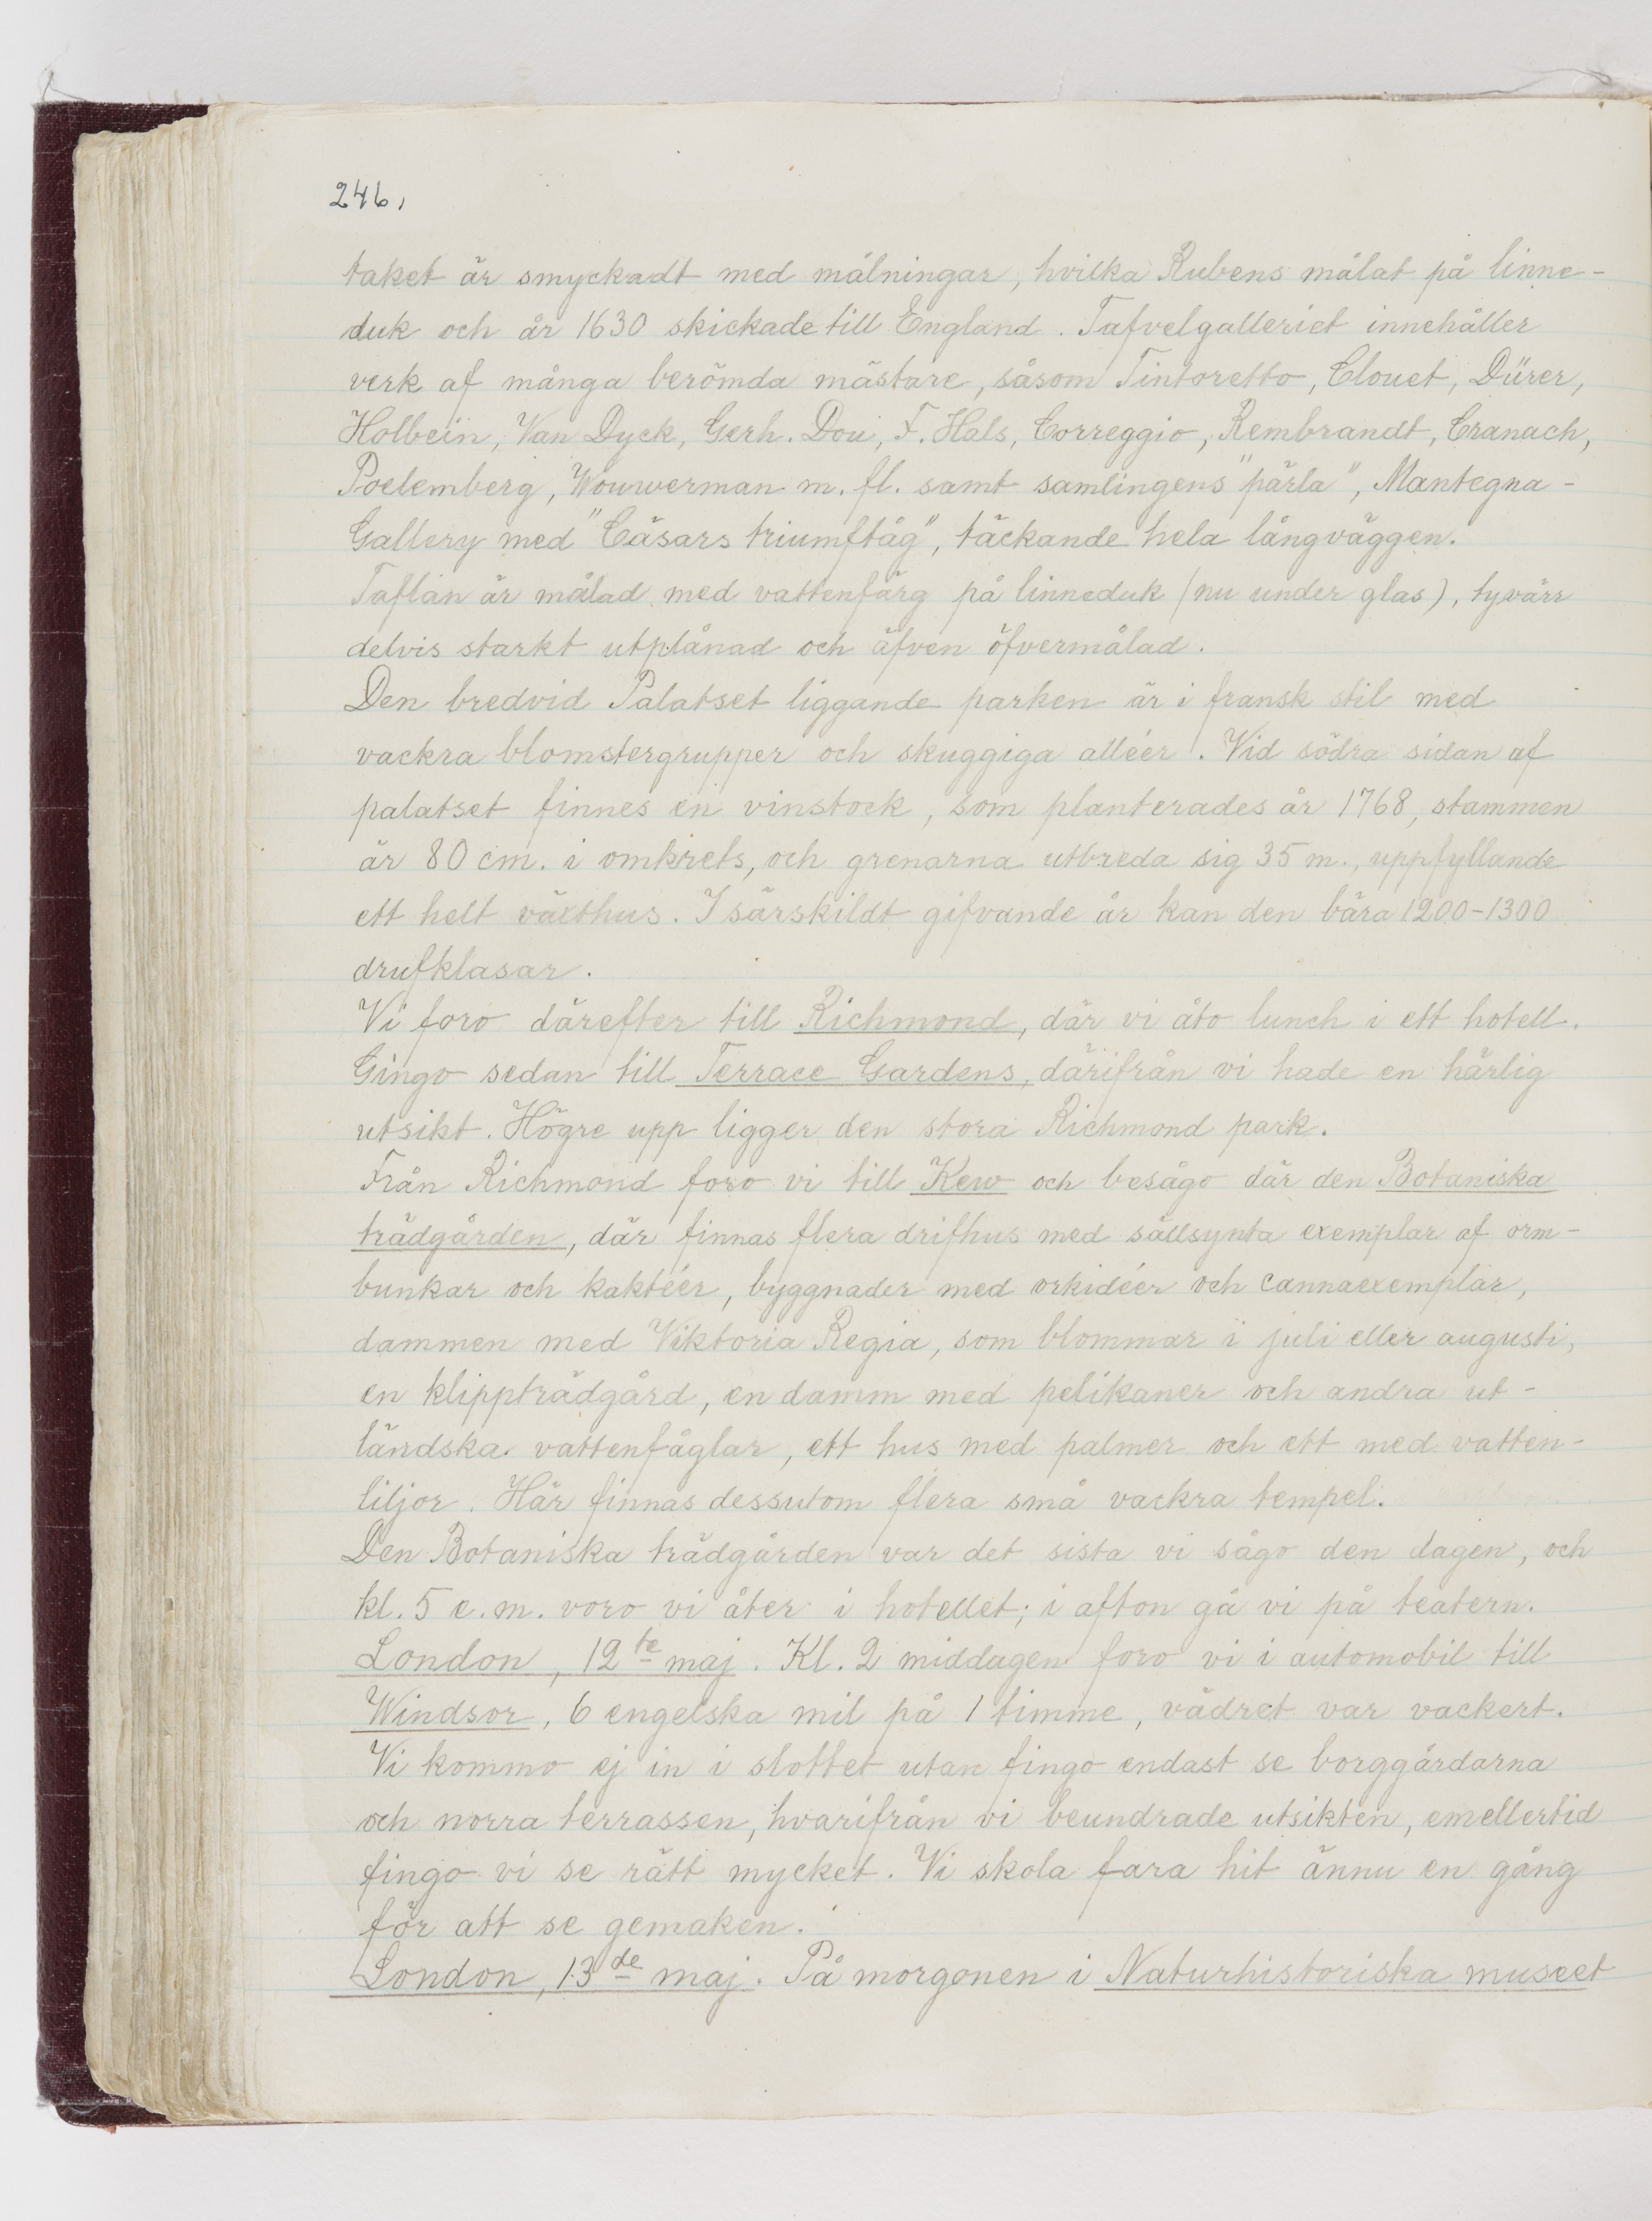 246,
taket är smyckadt med målningar, hvilka Rubens målat på linne-
duk och år 1630 skickade till England. Tafvelgalleriet innehåller
verk af många berömda mästare, såsom Tintoretto, Clouet, Dürer,
Holbein, Van Dyck, Gerh. Dou, F. Hals, Correggio, Rembrandt, Cranach,
Poelemberg, Wouwerman m. fl. samt samlingens "pärla", Mantegna-
Gallery med "Cäsars triumftåg", täckande hela långväggen.
Taflan är målad med vattenfärg på linneduk (nu under glas), tyvärr
delvis starkt utplånad och äfven öfvermålad.
Den bredvid Palatset liggande parken är i fransk stil med
vackra blomstergrupper och skuggiga alléer. Vid södra sidan af
palatset finnes en vinstock, som planterades år 1768, stammen
är 80 cm. i omkrets, och grenarna utbreda sig 35 m., uppfyllande
ett helt växthus. I särskildt gifvande år kan den bära 1200-1300
drufklasar.
Vi foro därefter till Richmond, där vi åto lunch i ett hotell.
Gingo sedan till Terrace Gardens, därifrån vi hade en härlig
utsikt. Högre upp ligger den stora Richmond park.
Från Richmond foro vi till Kew och besågo där den Botaniska
trädgården, där finnas flera drifhus med sällsynta exemplar af orm-
bunkar och kaktéer, byggnader med orkidéer och cannaexemplar,
dammen med Viktoria Regia, som blommar i juli eller augusti,
en klippträdgård, en damm med pelikaner och andra ut-
ländska vattenfåglar, ett hus med palmer och ett med vatten-
liljor. Här finnas dessutom flera små vackra tempel.
Den Botaniska trädgården var det sista vi sågo den dagen, och
kl. 5 e. m. voro vi åter i hotellet; i afton gå vi på teatern.
London, 12te maj. Kl. 2 middagen foro vi i automobil till
Windsor, 6 engelska mil på 1 timme, vädret var vackert.
Vi kommo ej in i slottet utan fingo endast se borggårdarna
och norra terrassen, hvarifrån vi beundrade utsikten, emellertid
fingo vi se rätt mycket. Vi skola fara hit ännu en gång
för att se gemaken.
London, 13de maj. På morgonen i Naturhistoriska museet